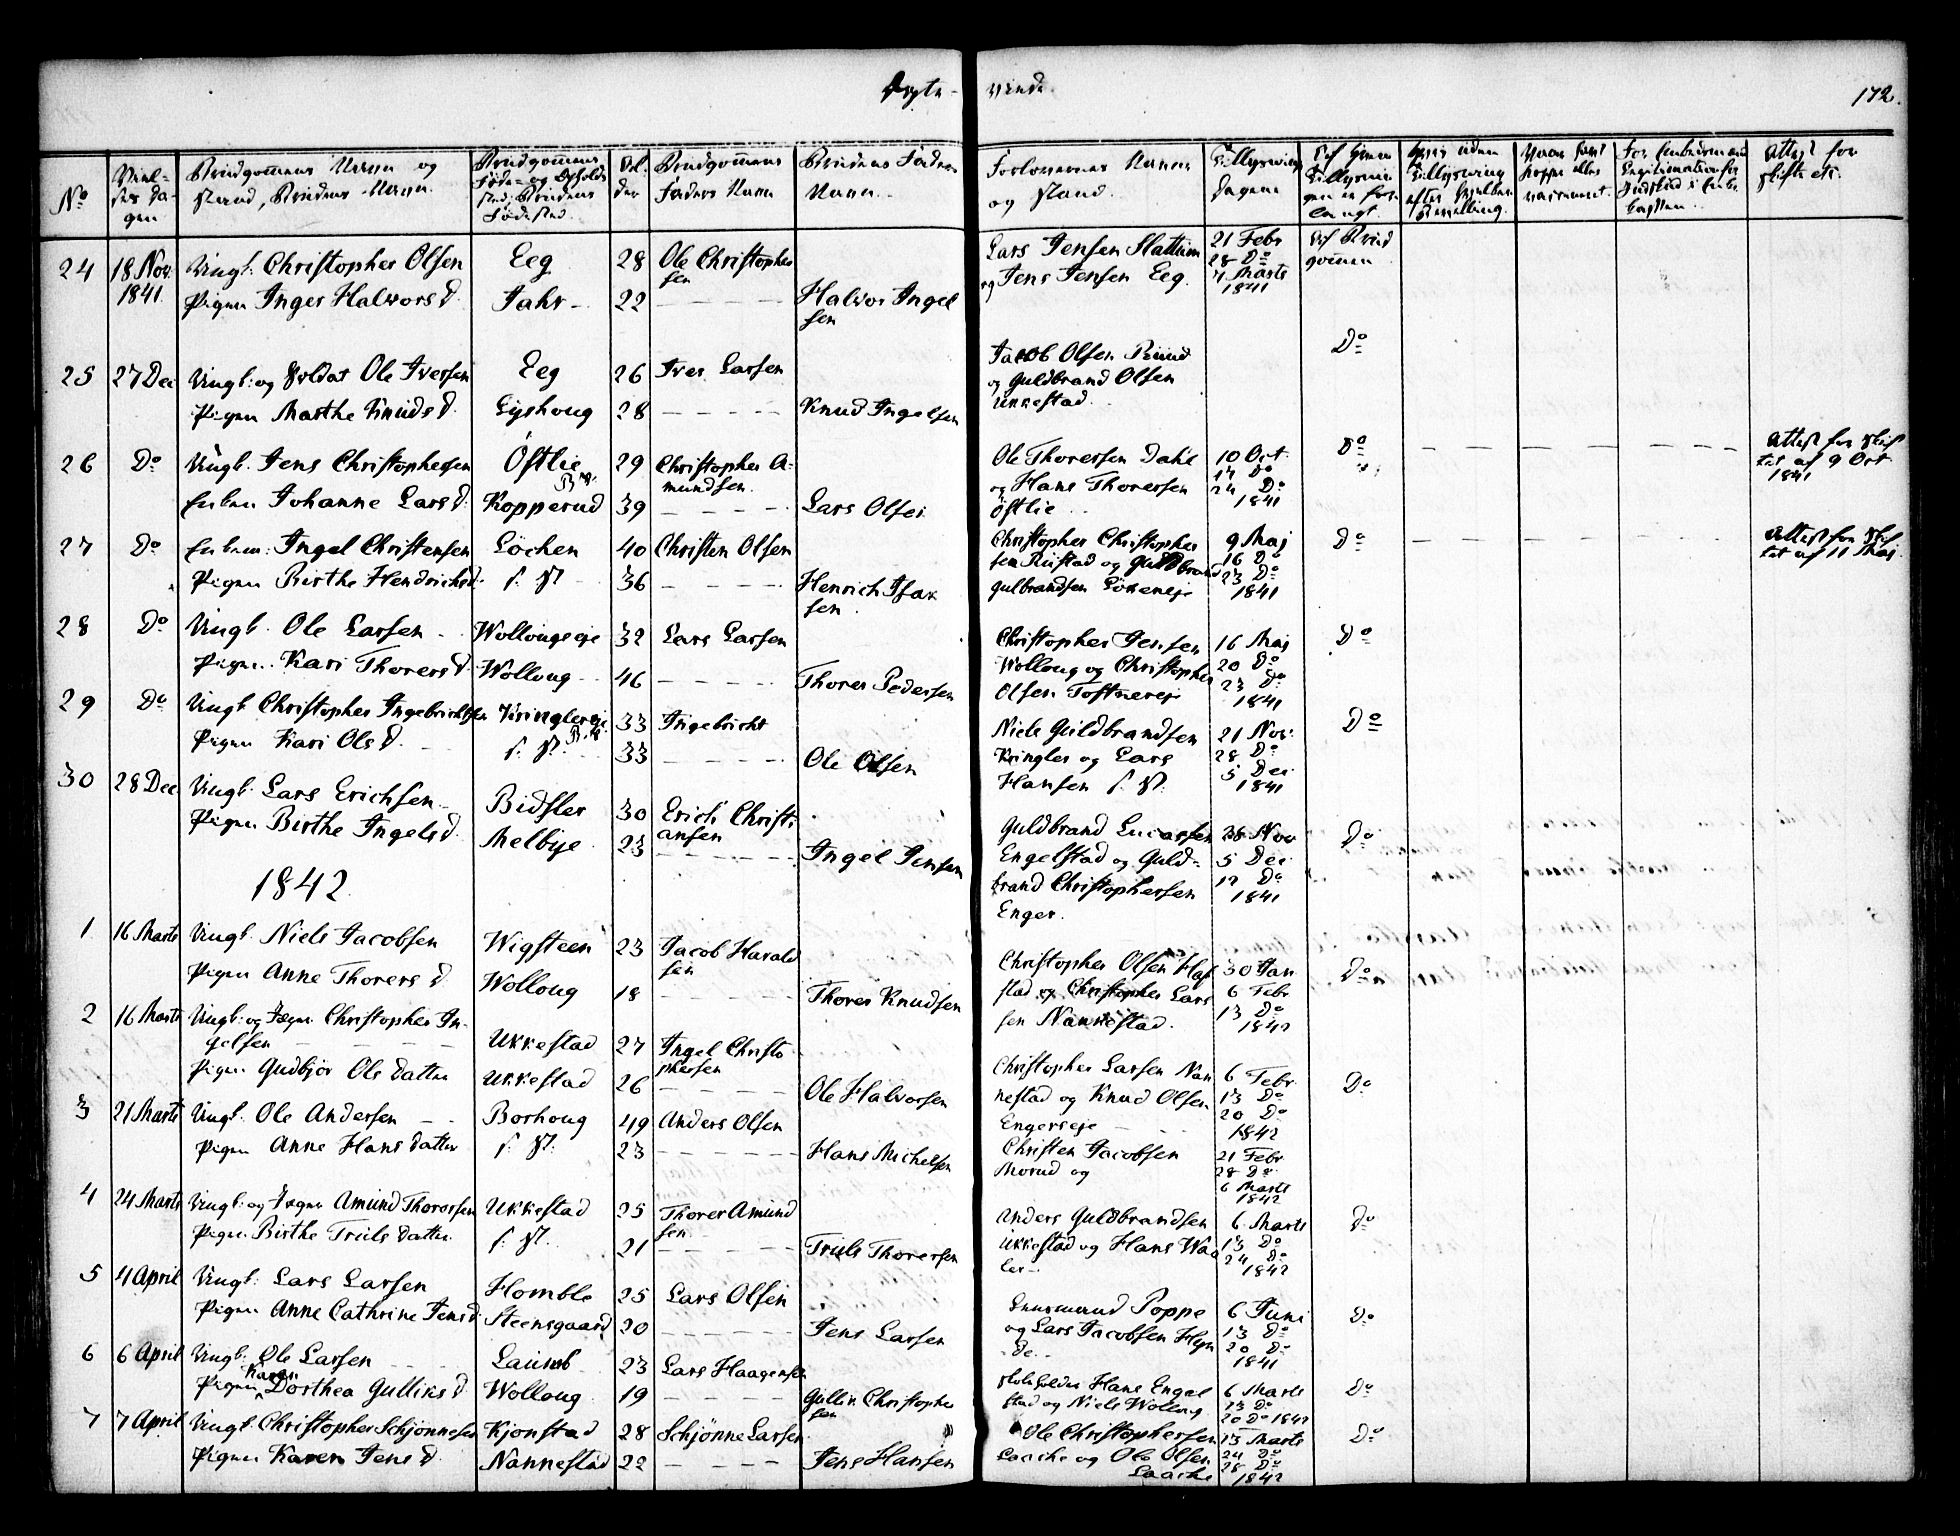 Ægte-viede.
172.
No
Viel-
ses Da-
gen
Brudgommens Navn og
Stand, Brudens Navn.
Brudgommens
Føde- og Opholds
sted, Brudens
Fødested.
Al-
der
Brudgommens
Faders Navn
Brudens Faders
Navn.
Forlovernes Navne
og Stand.
Tillysnings
Dagene
Attest for
Skifte etc.
24 18 Nov. Ungk: Christopher Olsen Eeg 28 Ole Christopher Lars Jensen Slattum 21 Febr Af Brud
1841 sen og Jens Jensen Eeg. 28 Do gommen
Pigen Inger Halvorsd. Jahr 22 - - - - Halvor Ingel 7 Marts
sen 1841
25 27 Dec Ungk: og Soldat Ole Iversen Eeg 26 Iver Larsen Jacob Olsen Ruud Do
og Guldbrand Olsen
Pigen Marthe Knudsd. Lyshoug 28 - - - - Knud Ingelsen Ukkestad
26 Do Ungk. Jens Christophersen Østlie 29 Christopher A- Ole Thoresen Dahl 10 Oct. Do Attest fra Skif
mundsen. og Hans Thoresen 17 Do tet af 9 Oct
Enken Johanne Larsd. Kopperud 39 - - - - Lars Olsen Østlie 24 Do 1841
1841
27 Do Enkem: Ingel Christensen Løchen 40 Christen Olsen Christopher Christopher 9 Maj Do Attest fra Skif
sen Rustad og Guldbrand 16 Do tet af 11 Maj
Pigen Birthe Hendrichsd. s. St. 36 - - - - Henrich Isax Gulbrandsen Løkeneje 23 Do
sen 1841
28 Do Ungk. Ole Larsen Wollougseje 32 Lars Larsen Christopher Jensen 16 Maj Do
Wolloug og Christopher 20 Do
Pigen Kari Thorersd. Wolloug 46 - - - - Thorer Pedersen Olsen Toftnereje 23 Do
1841
29 Do Ungk Christopher Ingebrichtsen Kringlereje 33 Ingebricht Niels Guldbrandsen 21 Nov. Do
Kringler og Lars 28 Do
Pigen Kari Olsd. s. St. 33 - - - - Ole Olsen Hansen s. St. 5 Dec.
1841
30 28 Dec Ungk. Lars Erichsen Bidsler 30 Erich Christi Guldbrand Lucassen 28 Nov Do
ansen Engelstad og Guld- 5 Dec
Pigen Birthe Ingelsd. Melbye 23 - - - - Ingel Jensen brand Christophersen 12 Do
Enger. 1841
1842.
1 16 Marts Ungk. Niels Jacobsen Wigsteen 23 Jacob Harald Christopher Olsen 30 Jan Do
sen stad og Christopher Lars 6 Febr
Pigen Anne Thorersd Wolloug 18 - - - - Thorer Knudsen sen Nannestad. 13 Do
1842
2 16 Marts Ungk: og Christopher In-
gelsen Ukkestad 27 Ingel Christo Christopher Larsen Nan 6 Febr Do
phersen nestad og Knud Olsen 13 Do
Pigen Gudbjør Olsdatter Ukkestad 26 - - - - Ole Halvorsen Engerseje 20 Do
1842
3 21 Marts Ungk. Ole Andersen Borhoug 49 Anders Olsen Christen Jacobsen 21 Febr
Morud og 28 Do
Pigen Anne Hansdatter s. St. 23 - - - - Hans Michelsen 6 Marts
1842
4 24 Marts Ungk: og Amund Thoresen Ukkestad 25 Thorer Amund Anders Guldbrandsen 6 Marts Do
sen Ukkestad og Hans Waa 13 Do
Pigen Birthe Trulsdatter s. St. 21 - - - - Truls Thorersen ler 24 Do
1842
5 4 April Ungk: Lars Larsen Homble 25 Lars Olsen Poppe 6 Juni Do
og Lars Jacobsen 13 Do
Pigen Anne Cathrine Jensd. Steensgaard 20 - - - - Jens Larsen 20 Do
1841
6 6 April Ungk. Ole Larsen Laumb 23 Lars Haagensen Hans Engel 6 Marts Do
Karen stad og Niels Wolloug 13 Do
Pigen Dorthea Gulliksd. Wolloug 19 - - - - Gullik Christopher 20 Do 1842
sen
7 7 April Ungk. Christopher Schjønnesen Kjonstad 28 Schjønne Larsen Ole Christophersen 13 Marts Do
Laache og Ole Olsen 24 Do
Pigen Karen Jensd. Nannestad 22 - - - - Jens Hansen Laache 28 Do
1842